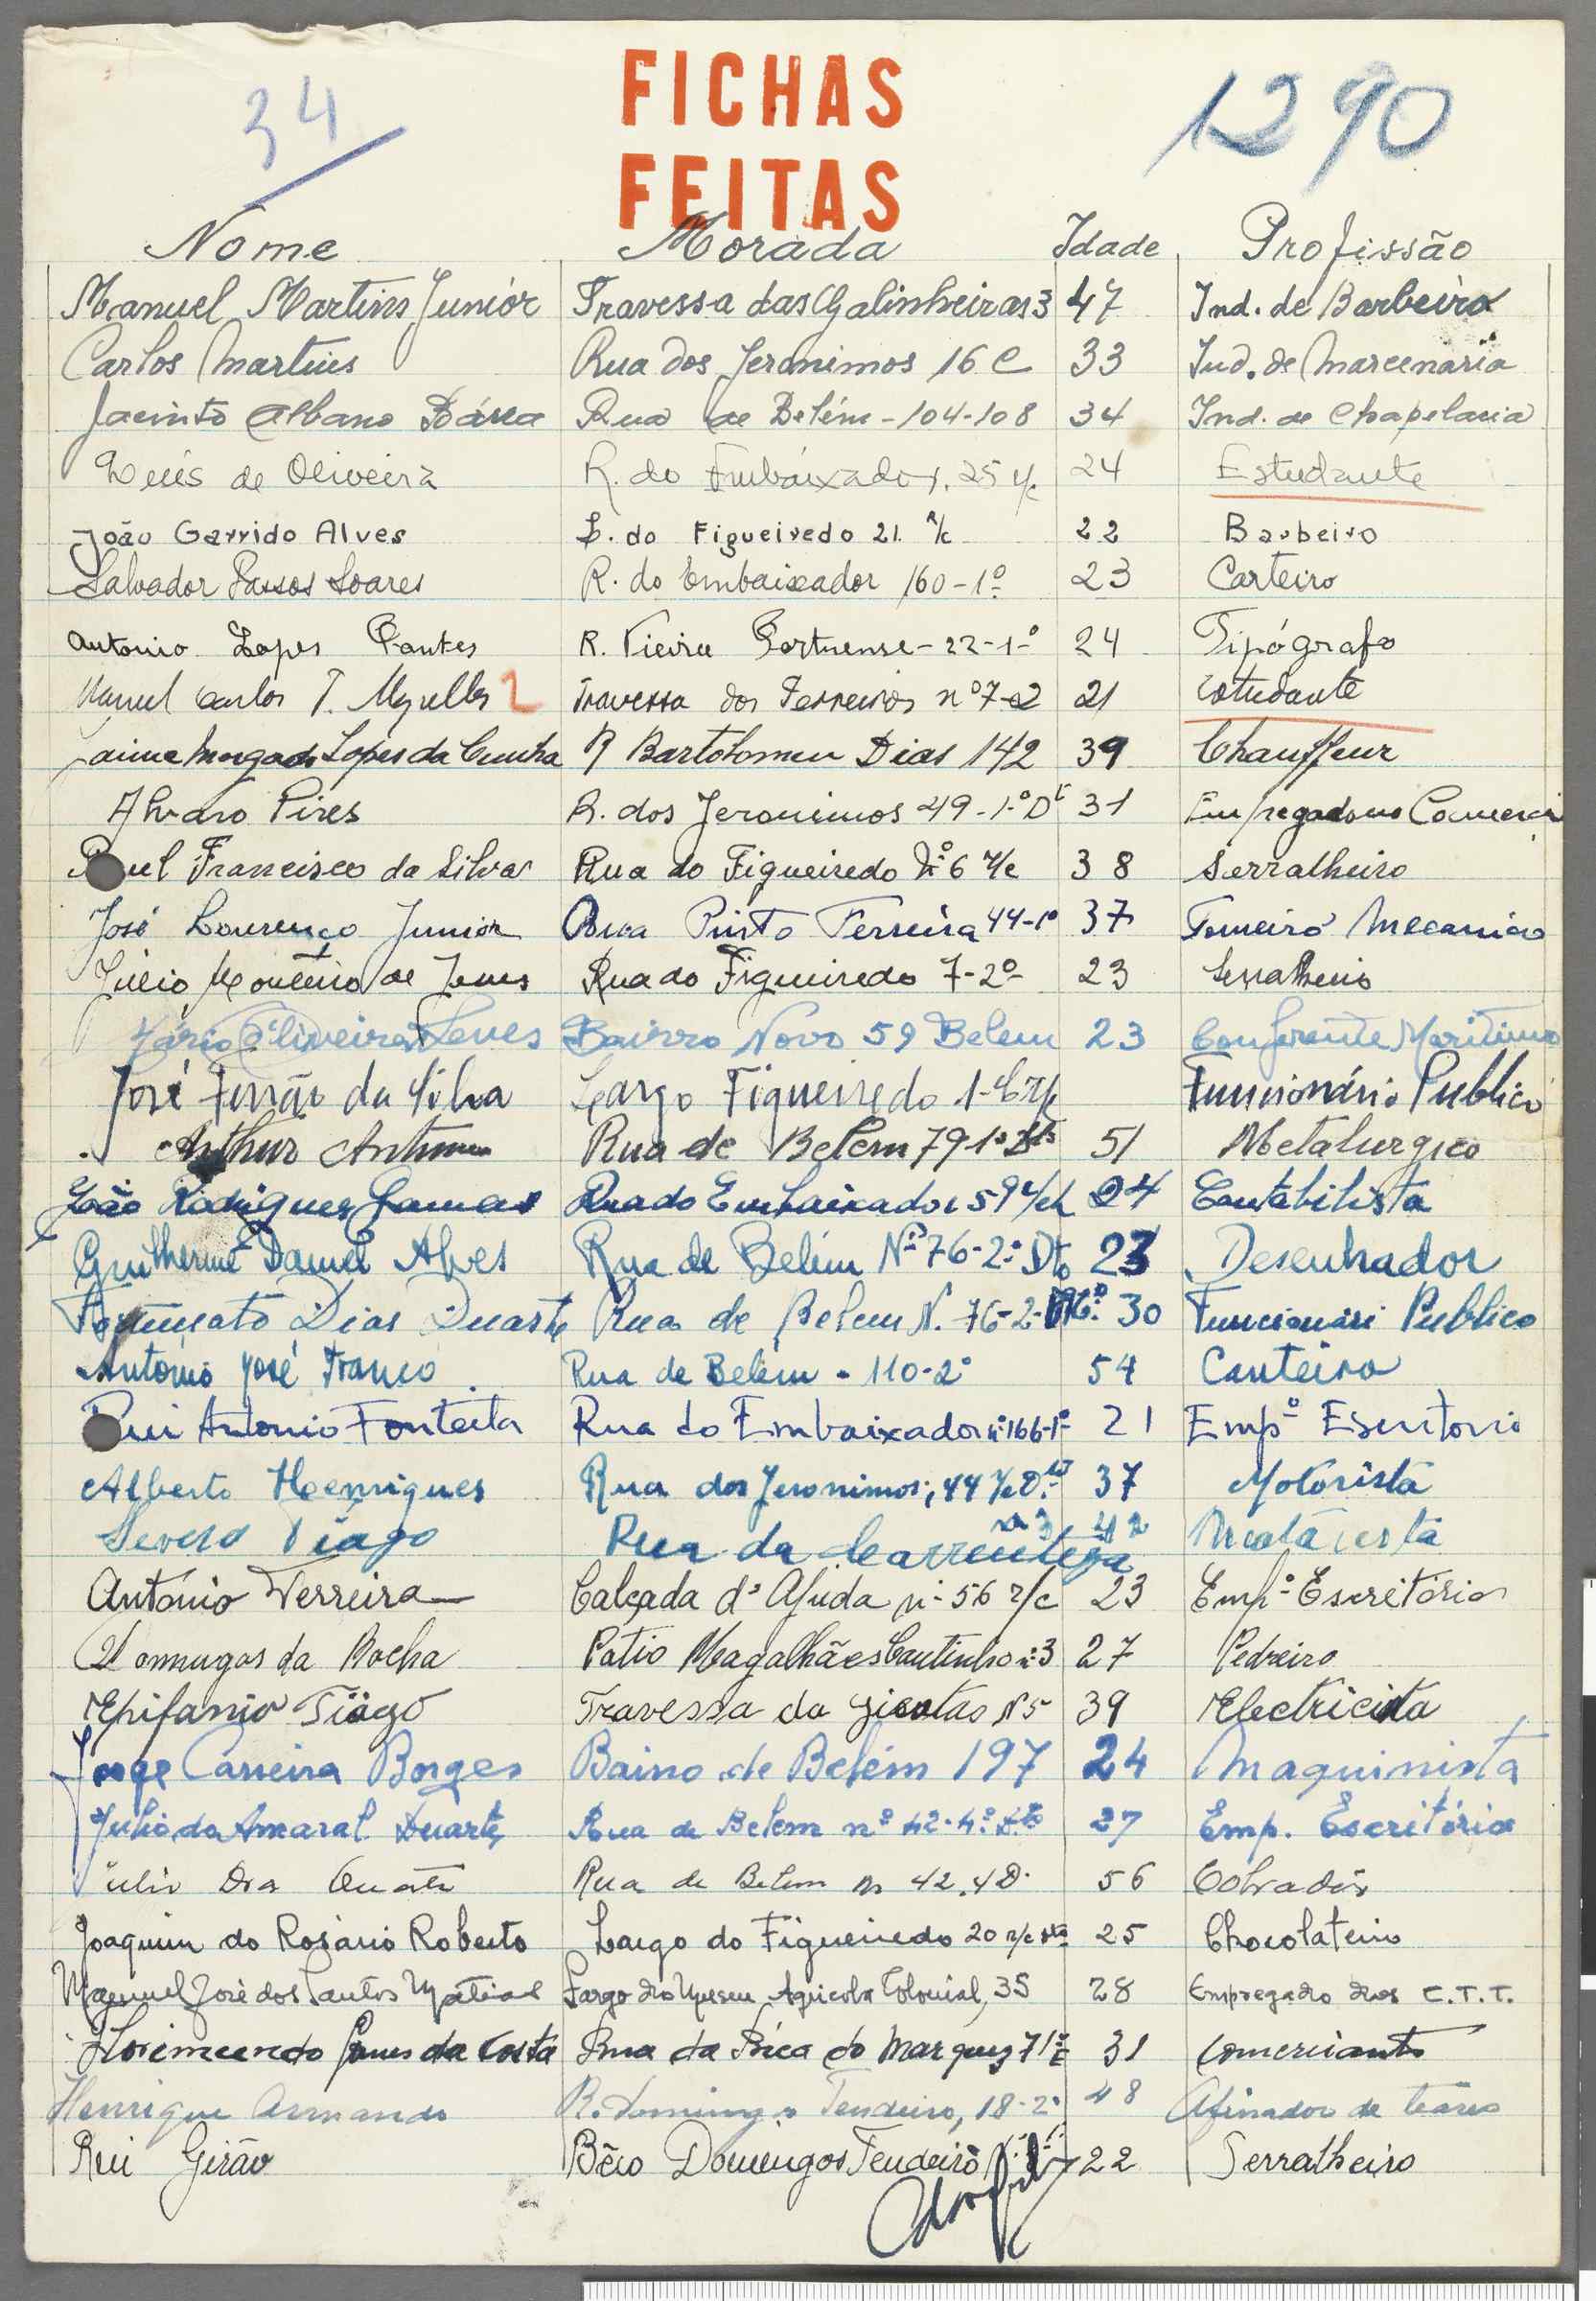 34
FICHAS
FEITAS
1290
Nome Morada Idade Profissão
Manuel Martins Junior Travessa das Galinheiras 3 47 Ind. de Barbeiro
Carlos Martins Rua dos Jeronimos 16 C 33 Ind. de Marcenaria
Jacinto Albano Rua de Belém - 104-108 34 Ind. de Chapelaria
Luís de Oliveira R. do Embaixador, 25 r/c 24 Estudante
João Garrido Alves L. do Figueiredo 21 R/c 22 Barbeiro
Salvador Passos Soares R. do Embaixador 160-1º 23 Carteiro
Antonio Lopes R. Vieira Portuense - 22-1-º 24 Tipógrafo
Manuel Carlos T. Travessa dos Ferreiros nº 7-2 21 Estudante
Jaime Morgado Lopes da Cunha R Bartolomeu Dias 142 39 Chauffeur
Alvaro Pires R. dos Jeronimos 49-1.º Dt 31 Empregado no Comercio
Raul Francisco da Silva Rua do Figueiredo Nº 6 r/c 38 Serralheiro
José Lourenço Junior Rua Pinto Ferreira 44-1º 37 Torneiro Mecanico
Júlio Monteiro de Jesus Rua do Figueiredo 7-2º 23 Serralheiro
Mário Oliveira Bairro Novo 59 Belem 23 Conferente Maritimo
José Ferrão da Silva Largo Figueiredo 1- r/c Funcionário Publico
Arthur Antunes Rua de Belem 79-1º Dto 51 Metalurgico
João Rodrigues Gamas Rua do Embaixador 59 r/ch 24 Contabilista
Guilherme Daniel Alves Rua de Belém Nº 76-2º Dto 23 Desenhador
Fortunato Dias Duarte Rua de Belem N. 76-2- 30 Funcionari Publico
António José Franco Rua de Belém - 110-2º 54 Canteiro
Rui Antonio Fonteita Rua do Embaixador nº 166-1º 21 Empº Escritorio
Alberto Henriques Rua dos Jeronimos, 44 r/c D.to 37 Motorista
Severo Tiago Rua da nº 3 42
António Ferreira Calçada d'Ajuda nº 56 r/c 23 Empº Escritório
Domingos da Rocha Patio Magalhães Coutinho nº 3 27 Pedreiro
Epifanio Tiago Travessa da N 5 39 Electricista
Jorge Carreira Borges Bairro de Belém 197 24 Maquinista
Julio do Amaral Duarte Rua de Belem nº 42-4º Dto 27 Emp. Escritório
Julio Rua de Belem nº 42, 4 D. 56 Cobrador
Joaquim do Rosário Roberto Largo do Figueiredo 20 r/c dto 25 Chocolateiro
Manuel José dos Santos Matias Largo do Museu Agricola Colonial, 35 28 Empregado dos C.T.T.
Florimundo Gomes da Costa Rua da Bica do Marquez 7 1º E 31 Comerciante
Henrique Armando R. Domingos Tendeiro, 18-2º 48 Afinador de teares
Rui Girão Bêco Domingos Tendeiro 22 Serralheiro